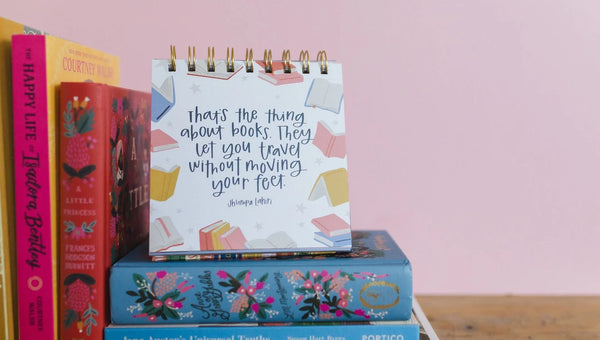 COURTNEY WALSH
THE HAPPY LIFE of Isadora Bentley
COURTNEY WALSH
A LITTLE PRINCESS
FRANCES HODGSON BURNETT
A
LITTLE
That's the thing
about books. They
let you travel
without moving
your feet.
Jhumpa Lahiri
Jane Austen's Universal Truths
PORTICO